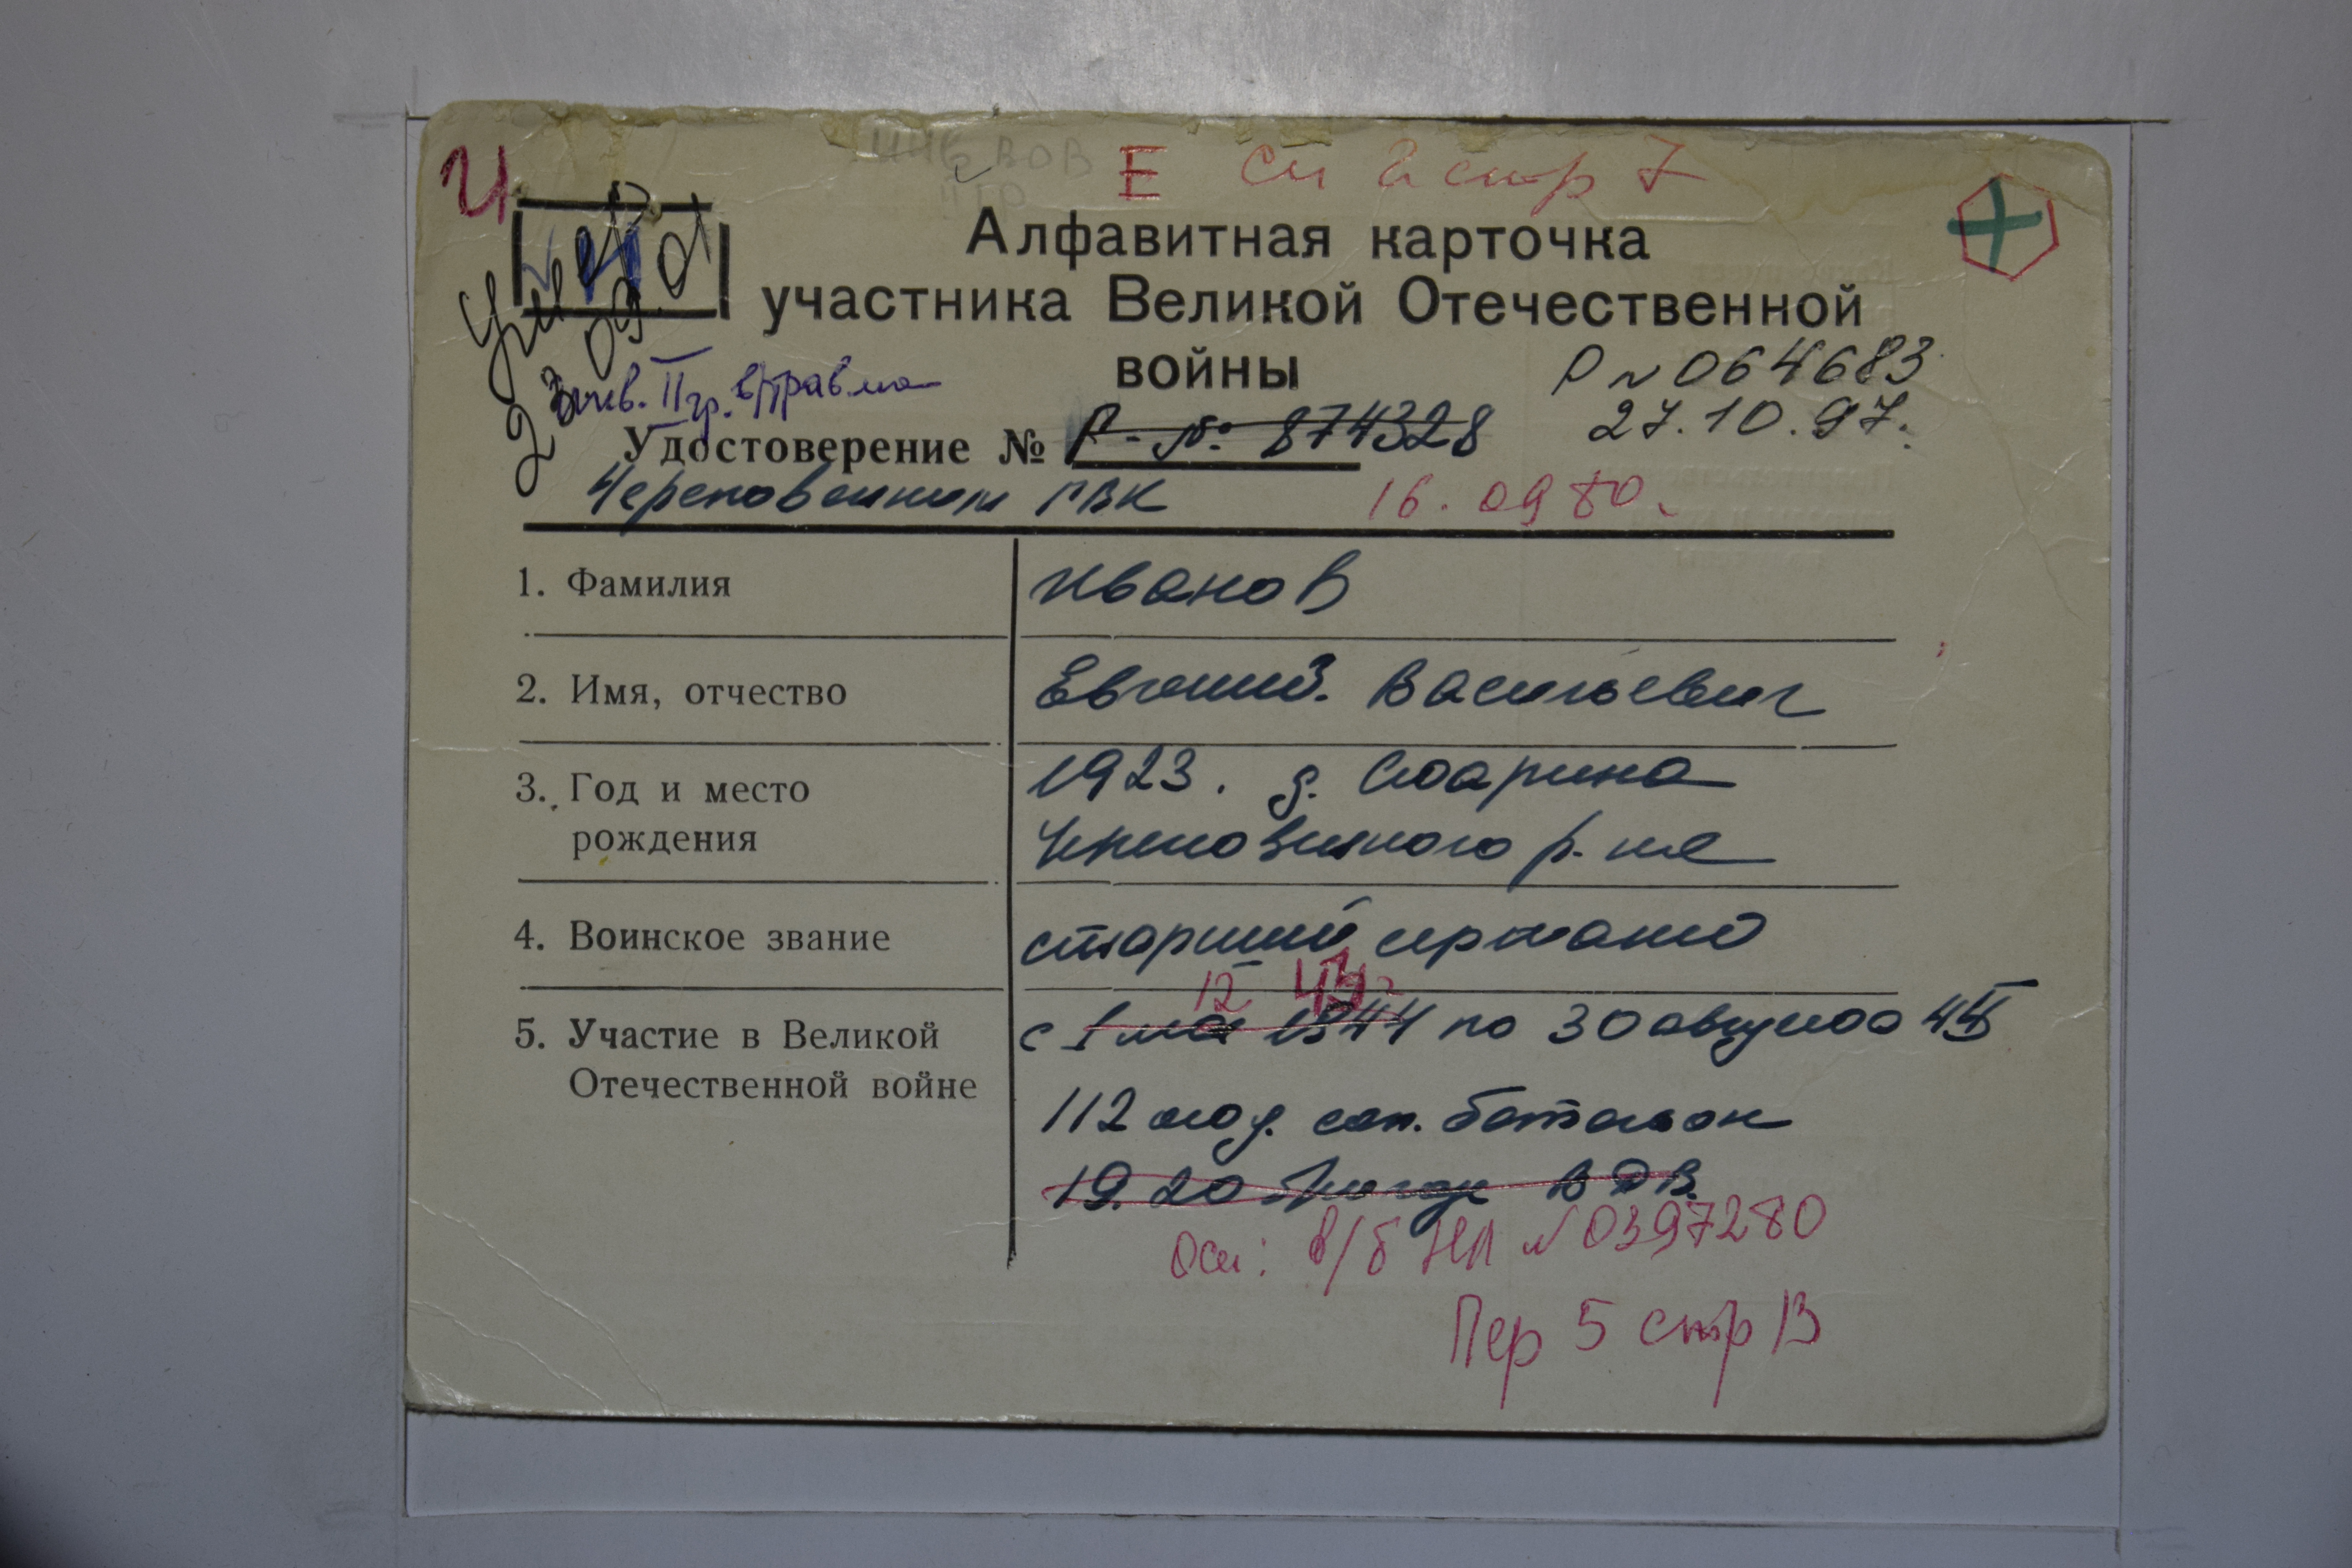 И Е см 2 стр 7
Алфавитная карточка
участника Великой Отечественной
войны
Умер
23 09 01
Р № 064683
27.10.97.
инв. II гр. в/травма
Удостоверение № Р - № 874328
Череповецким ГВК 16.09 80.
1. Фамилия Иванов
2. Имя, отчество Евгений Васильевич
3. Год и место 1923. д.
рождения Череповецкого р-на
4. Воинское звание старший сержант
12 43
5. Участие в Великой с 1 мая 1944 по 30 августа 45
Отечественной войне
112 отд. сап. батальон
19. 20 бригада ВДВ.
Осн: в/б НП № 0397280
Пер 5 стр 13